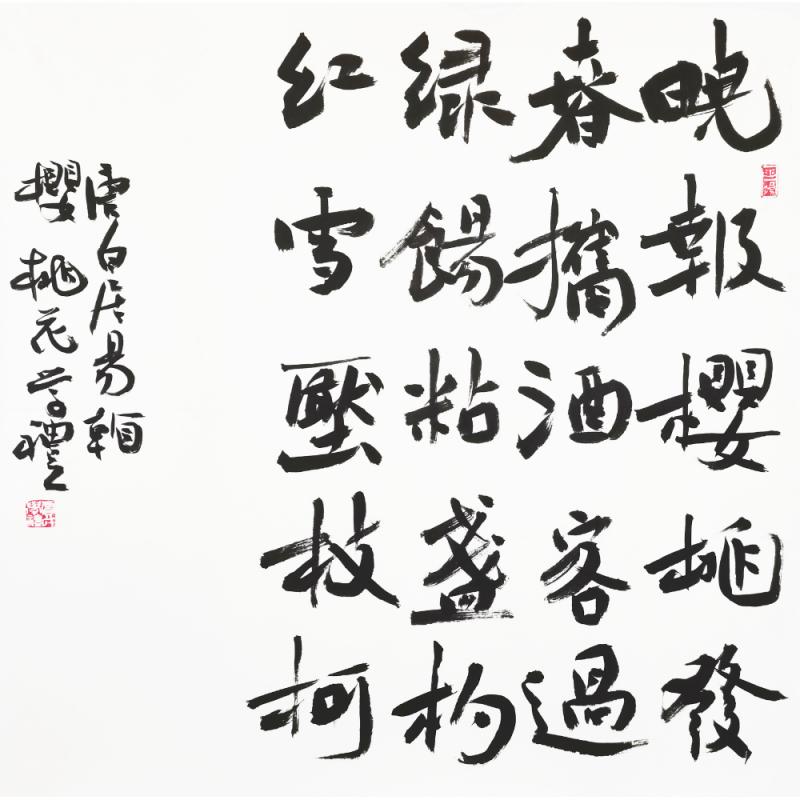 曉報櫻桃發
春攜酒客過
綠餳粘盞杓
紅雪壓枝柯
唐白居易
櫻桃花學禮